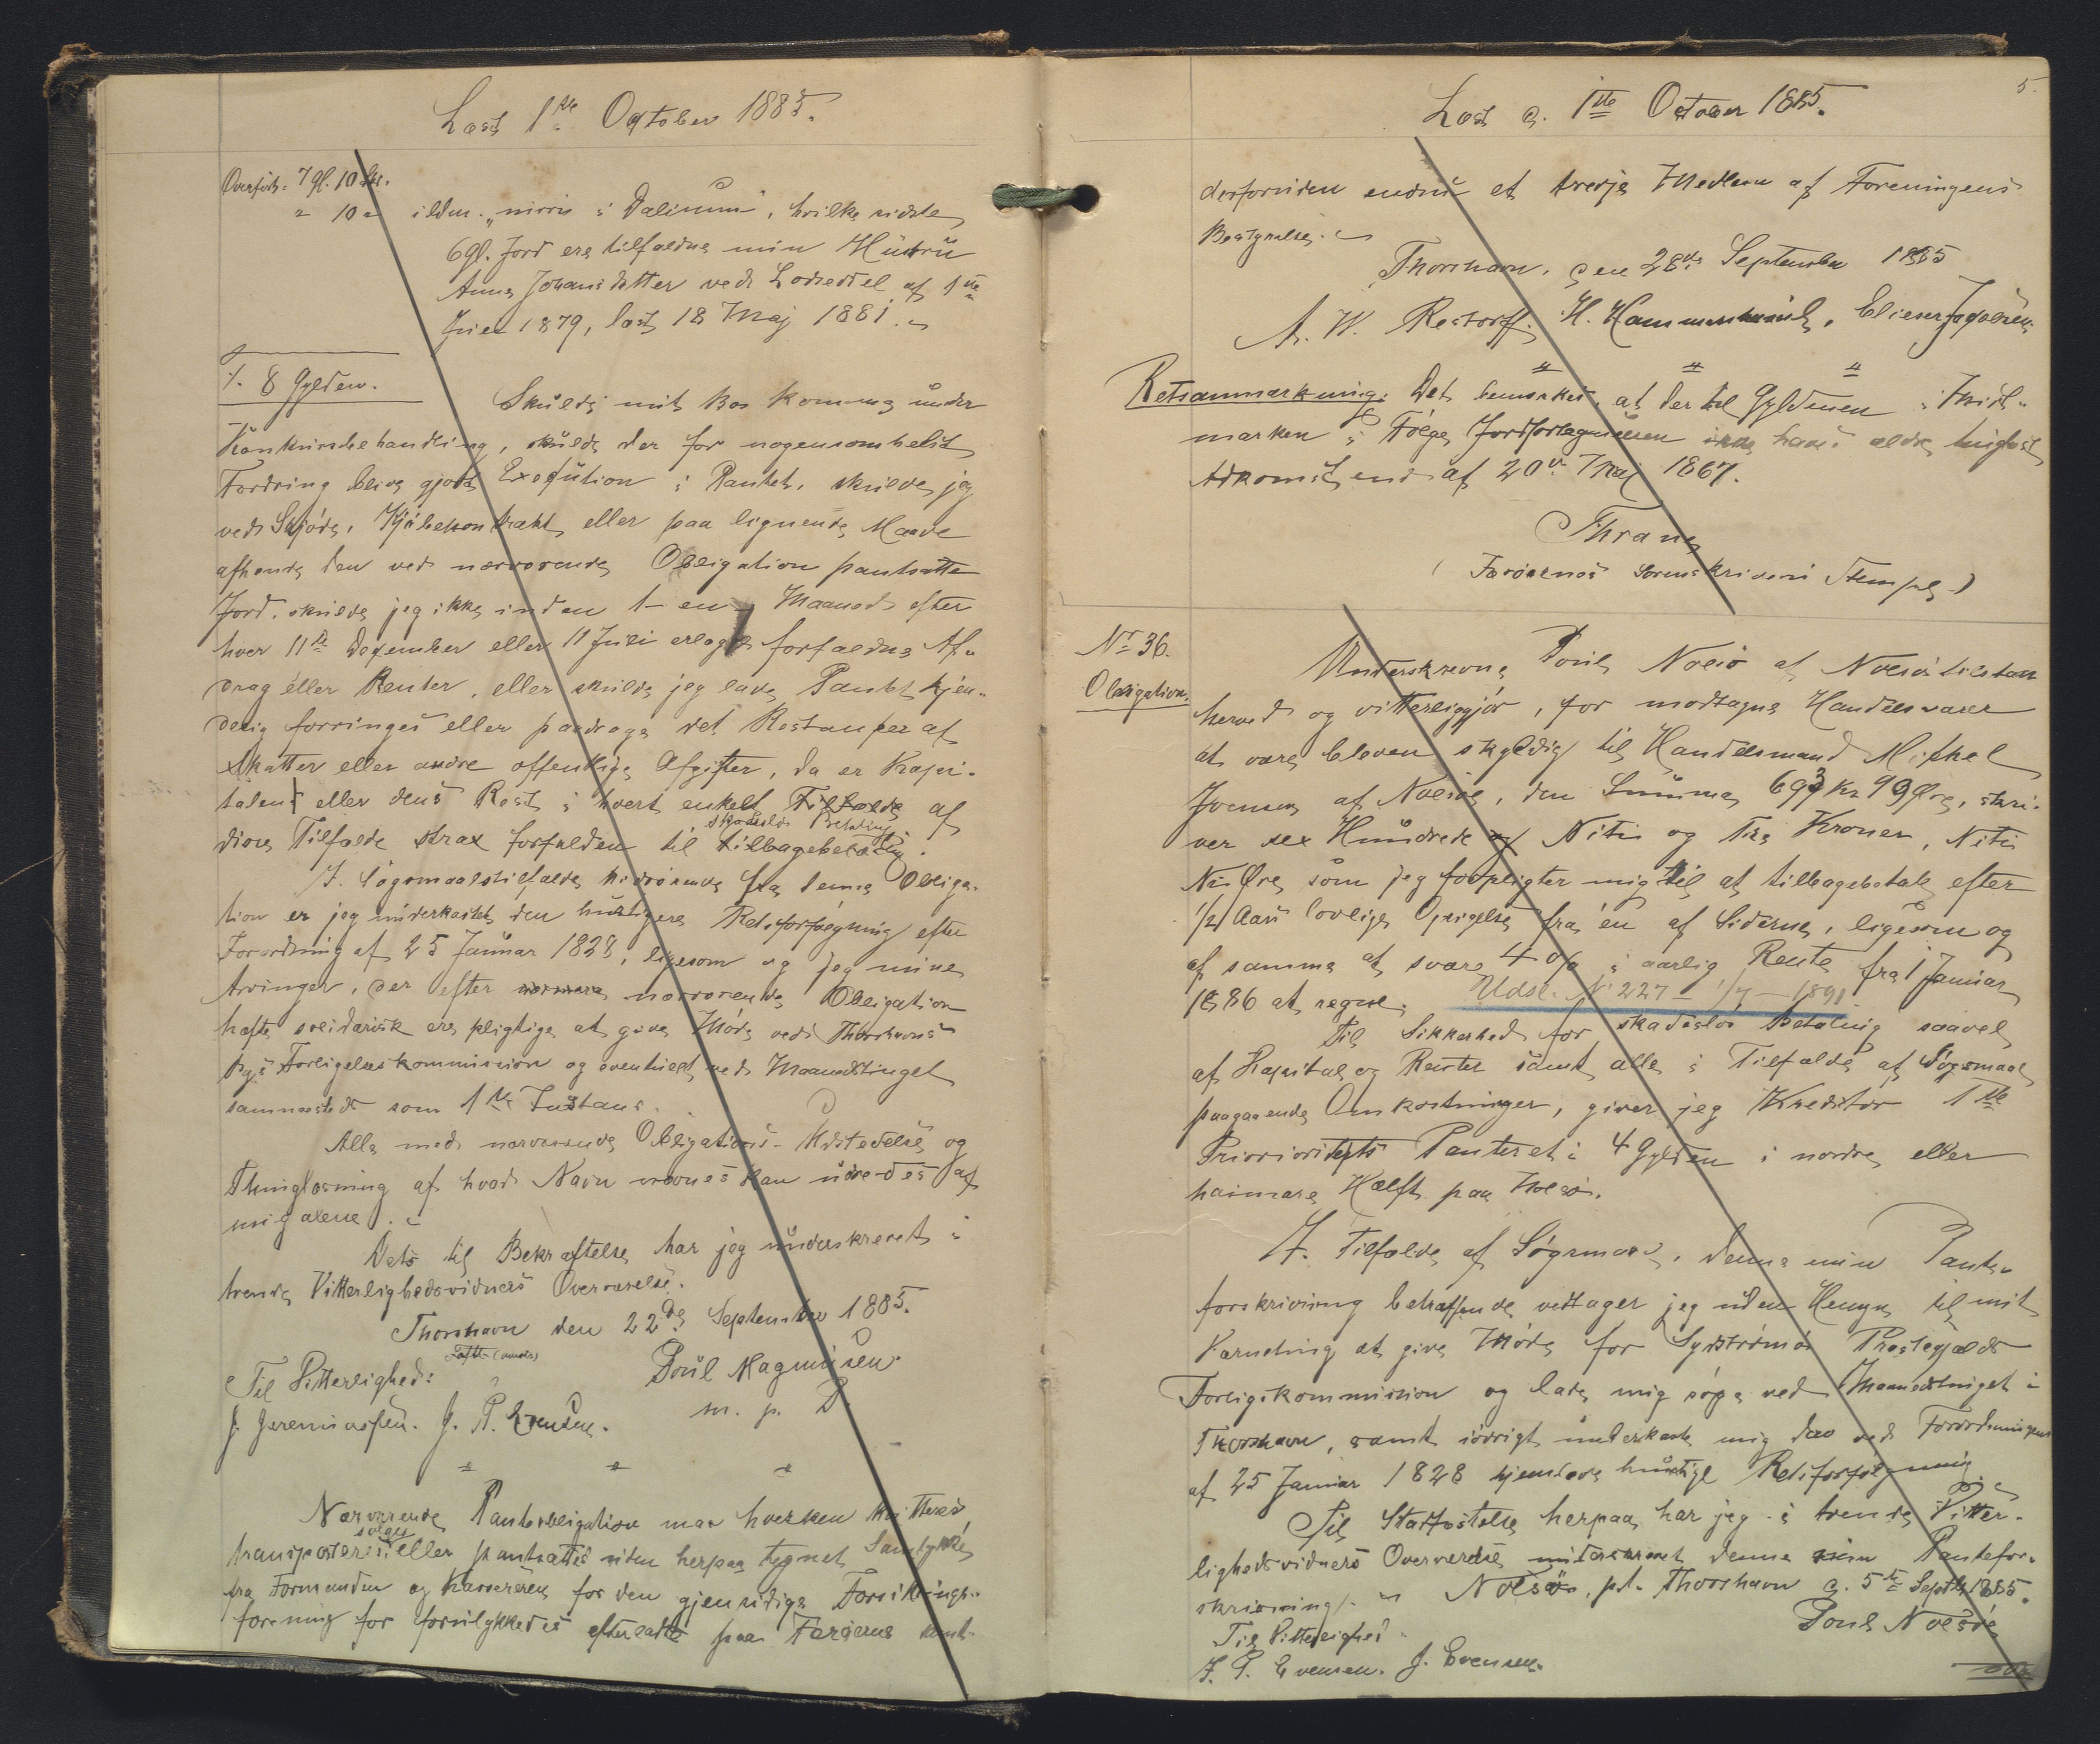 Læst 1ste October 1885.
Overført: 7 gl. 10 Sk.
" 10 " ildm. „mirri i Dalinum", hvilke sidste
6 gl. Jord ere tilfaldne min Hustru
Anna Johansdatter ved Lodseddel af 1ste
Juli 1879, læst 18 Maj 1881.
8 Gylden.
Skulde mit Bo komme under
Konkursbehandling, skulde der for nogensomhelst
Fordring blive gjort Exekution i Pantet, skulde jeg
ved Skjøde, Kjøbekontrakt eller paa lignende Maade
afhænde den ved nærværende Obligation pantsatte
Jord, skulde jeg ikke inden 1 - en - Maaned efter
hver 11te December eller 11 Juli erlagt forfaldne Af-
drag eller Renter, eller skulde jeg lade Pantet kjen-
delig forringes eller paadrage det Restancer af
Skatter eller andre offentlige Afgifter, da er Kapi-
talen eller dens Rest i hvert enkelt Tilfælde af
disse Tilfælde strax forfalden til skadesløs Betaling tilbagebetaling.
I Søgsmaalstilfælde hidrørende fra denne Obliga-
tion er jeg underkastet den hurtigere Retsforfølgning efter
Forordning af 25 Januar 1828, ligesom og jeg mine
Arvinger, der efter nærværende Obligation
hæfte solidarisk ere pligtige at give Møde ved Thorshavns
Bys Forligelseskommission og eventuelt ved Maanedstinget
sammesteds som 1ste Instans.
Alle med nærværende Obligations Udstedelse og
Thinglæsning af hvad Navn nævnes kan udredes af
mig alene.
Dets til Bekræftelse har jeg underskrevet i
tvende Vitterlighedsvidners Overværelse.
Thorshavn den 22de September 1885.
Til Vitterlighed:
Poul Magnusen
J. Jeremiassen. J. P. Evensen.
m. p. P.
Nærværende Pantobligation maa hverken kvitteres,
transporteres, sælges eller pantsættes uden herpaa tegnet Samtykke
fra Formanden og Kassereren for den gjensidige Forsikrings-
forening for forulykkedes efterladte paa Færøerne samt
5.
Læst d. 1ste October 1885.
desforuden endnu et tredje Medlem af Foreningens
Bestyrelse.
Thorshavn, den 28de September 1885
A. W. Restorff. H. Hammershaimb. Elieser Jogvansen
Retsanmærkning: Det bemærkes, at der til Gyldenen i Mid-
marken i Følge Jordforlagniseren ikke haves ældre tinglæst
Adkomst end af 20de Maj 1867.
Thrane
(Færøernes Sorenskriveri Stempel)
No 36.
Obligation.
Underskrevne Poul Nolsø af Nolsø tilstaar
herved og vitterliggjør, for modtagne Handelsvarer
at være bleven skyldig til Handelsmand Mikkel
Joensen af Nolsø, den Summa 693 Kr 99 Øre, skri-
ver sex Hundrede og Niti og Tre Kroner, Niti
Ni Øre, som jeg forpligter mig til at tilbagebetale efter
1/2 Aars lovlige Opsigelse fra en af Siderne, ligesom og
af samme at svare 4 % i aarlig Rente fra 1 Januar
1886 at regne.
Udsl. No 227 - 1/7 - 1891.
Til Sikkerhed for skadesløs Betaling saavel
af Kapital og Renter samt alle i Tilfælde af Søgsmaal
paagaaende Omkostninger, giver jeg Kreditor 1ste
Prioritets Panteret i 4 Gylden i nordre eller
haimare Hælft paa Nolsø.
I Tilfælde af Søgsmaal, denne min Pante-
forskrivning betræffende vedtager jeg uden Hensyn til mit
Værneting at give Møde for Sydstrømø Præstegjælds
Forligskommission og lade mig søge ved Maanedstinget i
Thorshavn, samt iøvrigt underkaste mig den ved Forordningen
af 25 Januar 1828 hjemlede hurtige Retsforfølgning.
Til Stadfæstelse herpaa har jeg i tvende Vitter-
lighedsvidners Overværelse underskrevet denne min Pantefor-
skrivning. Nolsø, p.t. Thorshavn d. 5te Septb 1885.
Til Vitterlighed
Poul Nolsø
J. P. Evensen. J. Evensen.